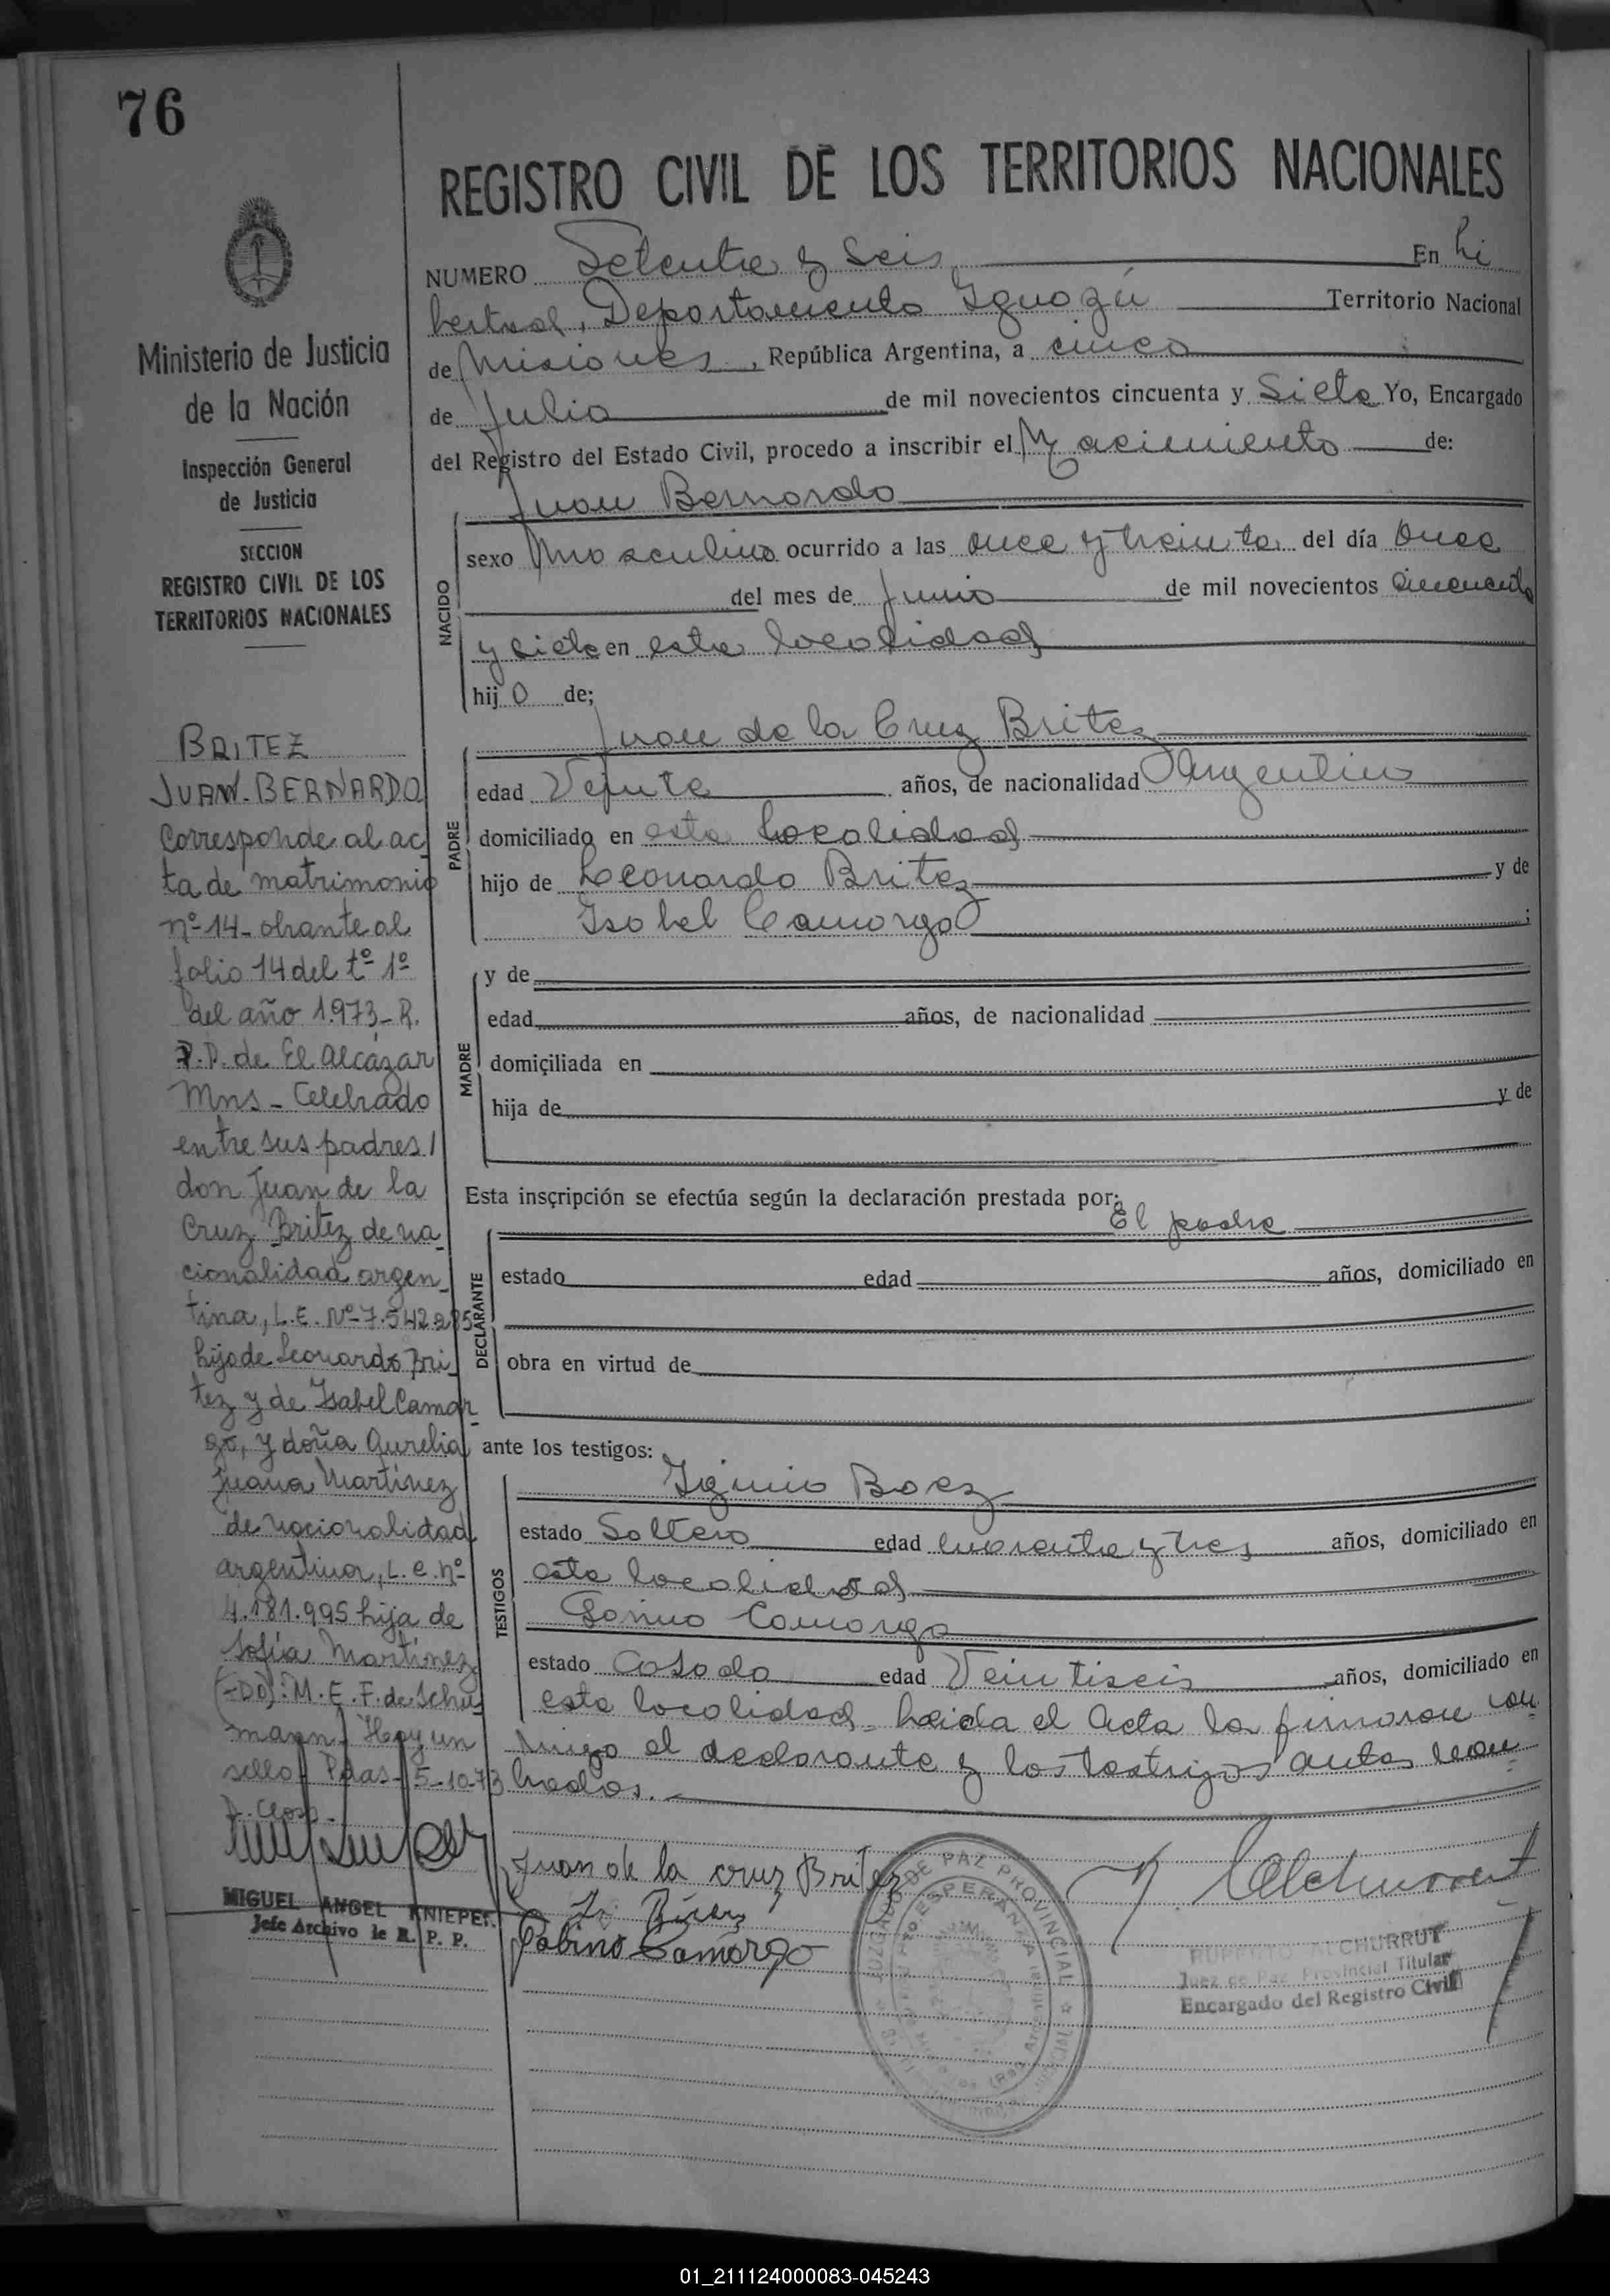 76
REGISTRO CIVIL DE LOS TERRITORIOS NACIONALES
NUMERO Setenta y Seis En Li
bertad, Departamento Iguazú Territorio Nacional
de Misiones, República Argentina, a cinco
de Julio de mil novecientos cincuenta y Siete Yo, Encargado
del Registro del Estado Civil, procedo a inscribir el Nacimiento de:
Juan Bernardo
NACIDO
sexo Masculino ocurrido a las once y treinta del día Once
del mes de Junio de mil novecientos Cincuenta
y siete en esta localidad
hijo de;
Juan de la Cruz Britez
PADRE
edad Veinte años, de nacionalidad Argentino
domiciliado en esta Localidad
hijo de Leonardo Britez y de
Isabel Camargo ;
MADRE
y de
edad años, de nacionalidad
domiciliada en
hija de y de
Esta inscripción se efectúa según la declaración prestada por:
El padre
DECLARANTE
estado edad años, domiciliado en
obra en virtud de
ante los testigos:
TESTIGOS
Iginio Baez
estado Soltero edad cuarenta y tres años, domiciliado en
esta localidad
Camargo
estado Casado edad Veintiseis años, domiciliado en
esta localidad. Leida el Acta la firmaron con
migo el declarante y los testigos antes nom
brados.
Juan de la cruz Britez
Camargo
JUZGADO DE PAZ PROVINCIAL
ESPERANZA
RUPERTO ALCHURRUT
Juez de Paz Provincial Titular
Encargado del Registro Civil
Ministerio de Justicia
de la Nación
Inspección General
de Justicia
SECCION
REGISTRO CIVIL DE LOS
TERRITORIOS NACIONALES
BRITEZ
JUAN BERNARDO
Corresponde al ac
ta de matrimonio
nº 14 - obrante al
folio 14 del tº 1º
del año 1.973 - R.
P.P. de El Alcázar
Mns - Celebrado
entre sus padres/
don Juan de la
Cruz Britez de na_
cionalidad argen_
tina, L.E. Nº 7.542.285
hijo de Leonardo Bri_
tez y de Isabel Camar_
go, y doña Aurelia
Juana Martínez
de nacionalidad
argentina, L.e. nº
4.181.995 hija de
Sofía Martínez
(-Do): M.E.F. de Schu
mann - Hay un
sello Pdas - 5-10-73
MIGUEL ANGEL KNIEPER
Jefe Archivo de R. P. P.
01_211124000083-045243